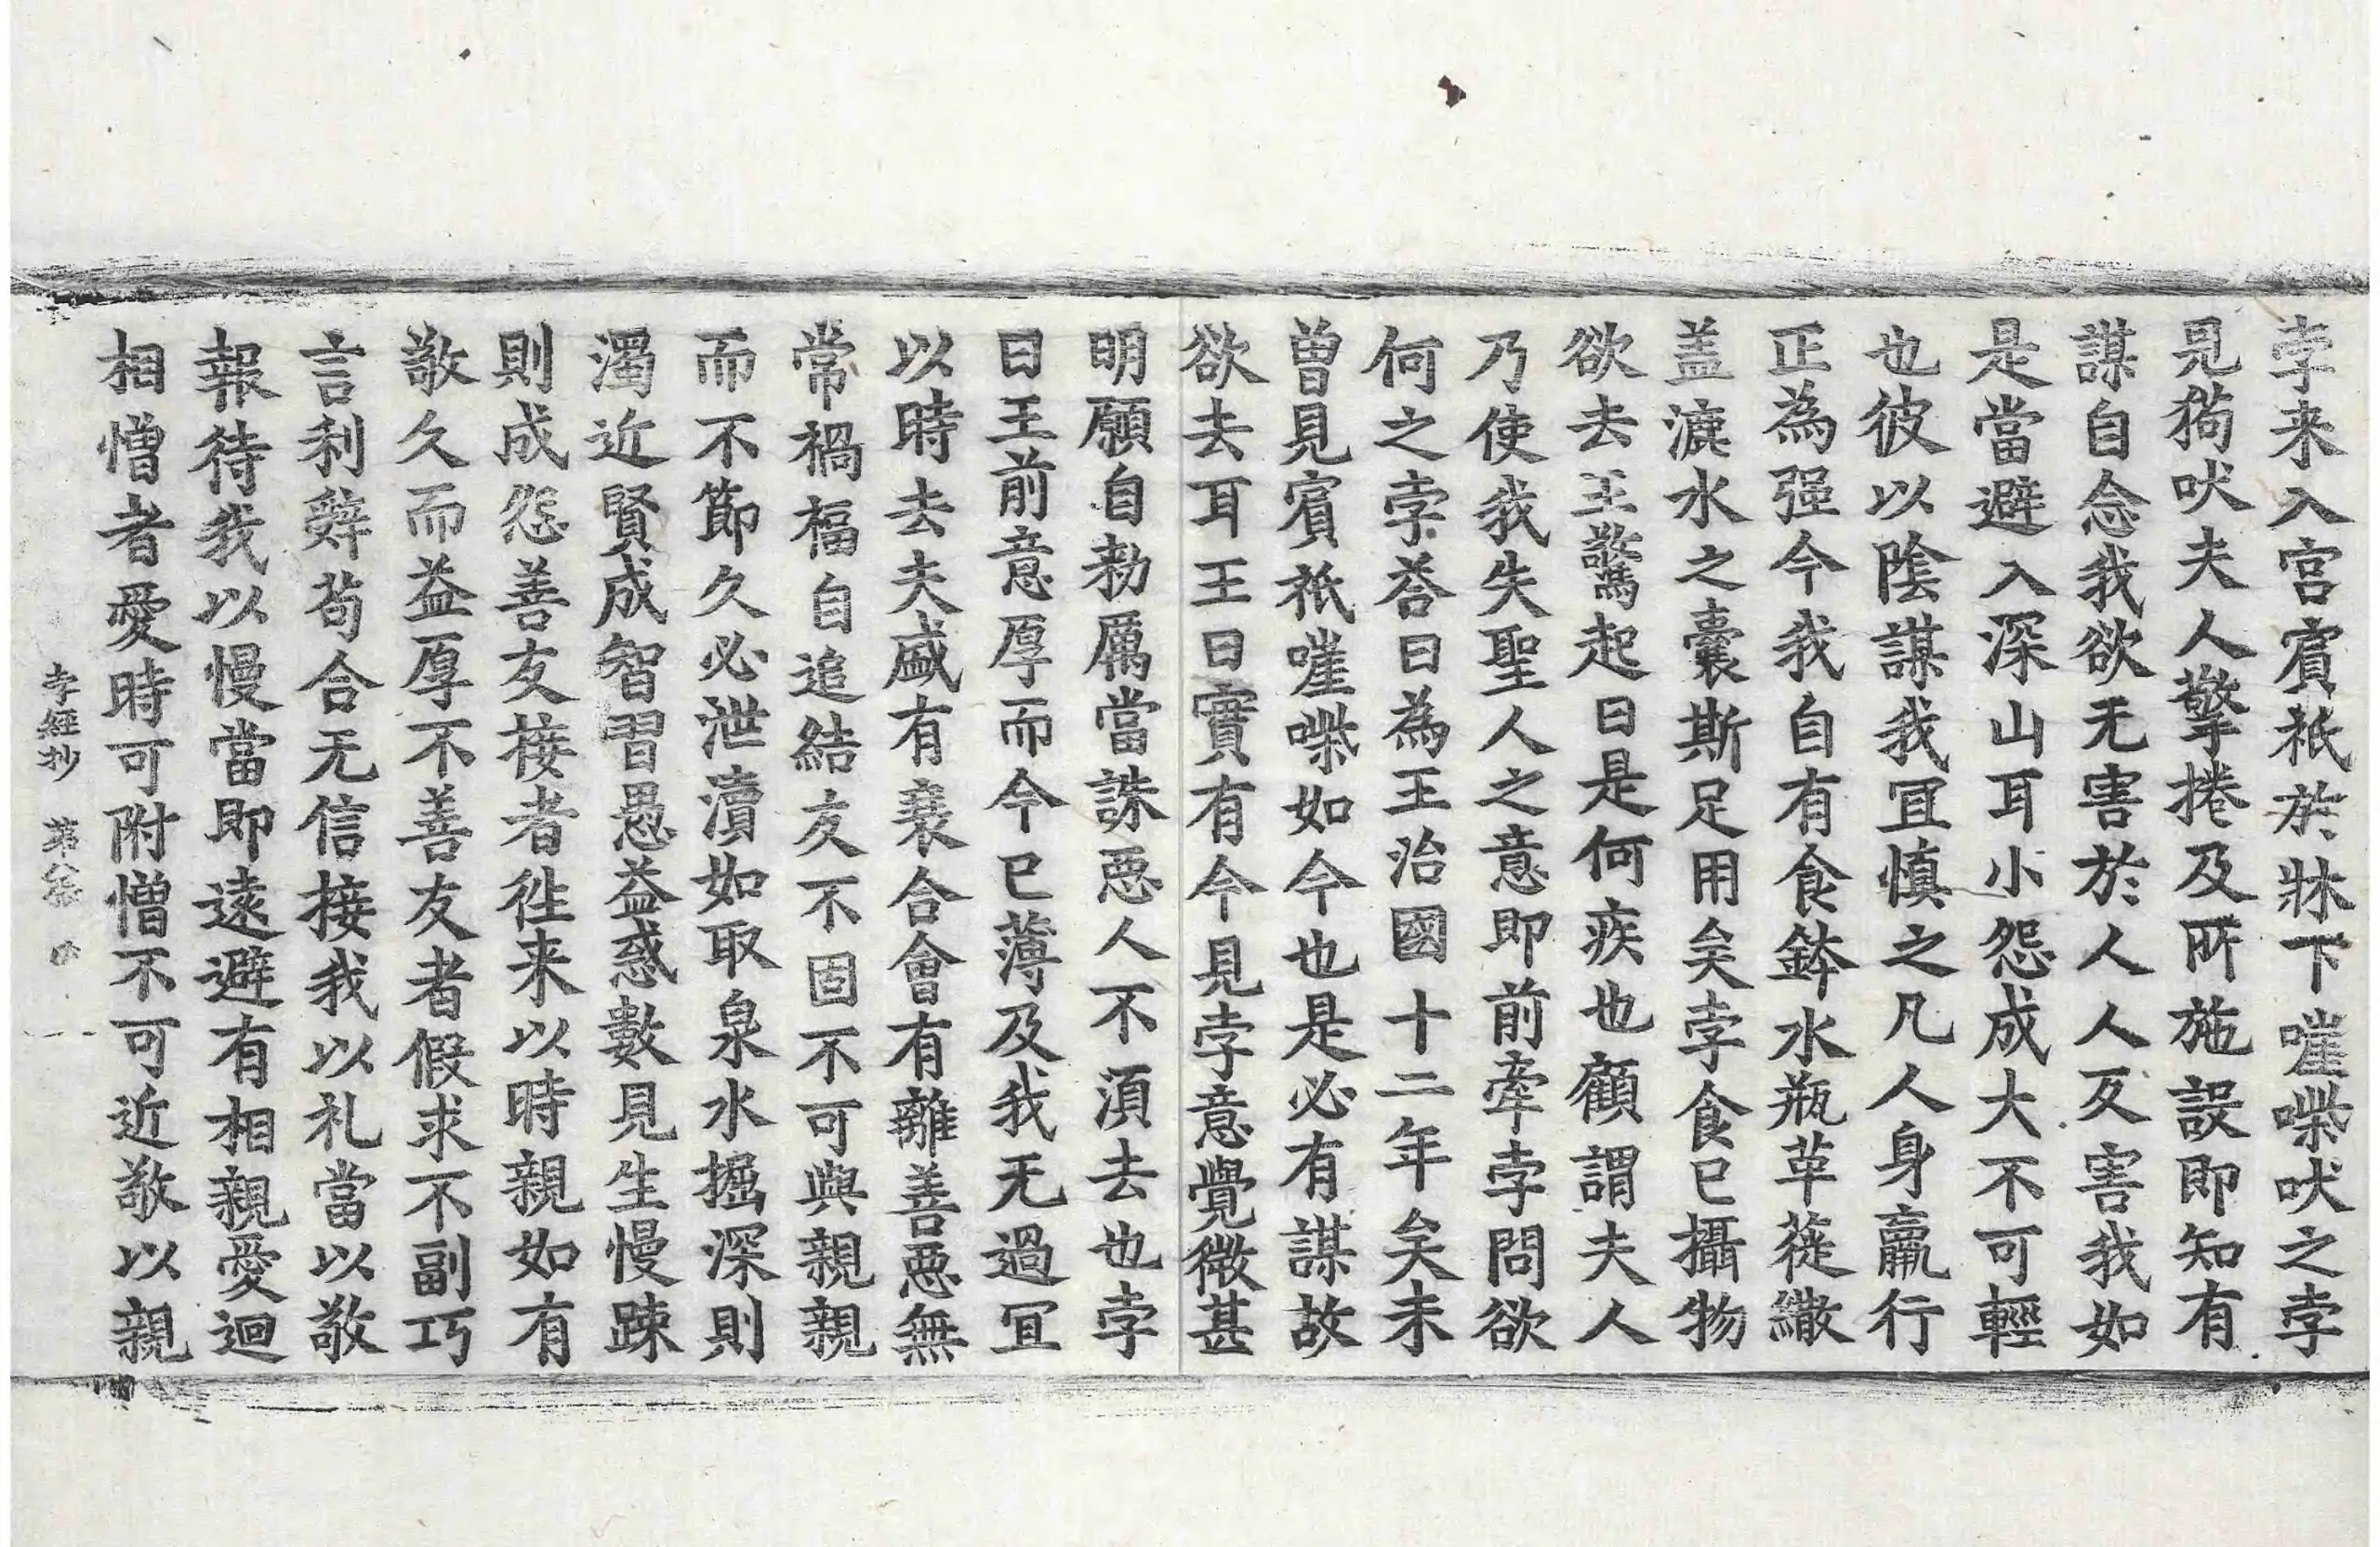 孛来入宮賔祇於牀下嘊喍吠之孛
見狗吠夫人擎捲及所施設即知有
謀自念我欲无害於人人反害我如
是當避入深山耳小怨成大不可輕
也彼以陰謀我冝慎之凡人身羸行
正為强今我自有食鉢水瓶革蓰繖
盖漉水之囊斯足用矣孛食已攝物
欲去王驚起曰是何疾也顧謂夫人
乃使我失聖人之意即前牽孛問欲
何之孛荅曰為王治國十二年矣未
曽見賔祇嘊喍如今也是必有謀故
欲去耳王曰實有今見孛意覺微甚
明願自勑厲當誅惡人不湏去也孛
曰王前意厚而今已薄及我无過冝
以時去夫盛有衰合會有離善惡無
常禍福自追結友不固不可與親親
而不節久必泄瀆如取泉水掘深則
濁近賢成智習愚益惑數見生慢踈
則成怨善友接者徃来以時親如有
敬久而益厚不善友者假求不副巧
言利辤苟合无信接我以礼當以敬
報待我以慢當即遠避有相親愛迴
相憎者愛時可附憎不可近敬以親
孛經抄 第八張